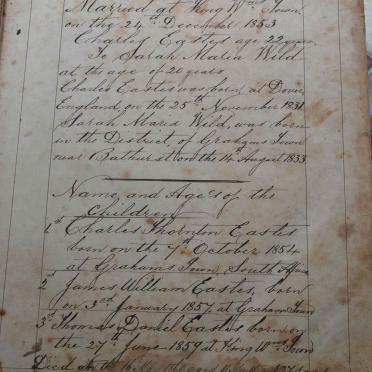 Married at King Wms Town
on the 24th December 1853
Charles Eastes age 22 years
To Sarah Maria Wild
at the age of 20 years.
Charles Eastes was born, at Dover,
England, on the 25th November 1831.
Sarah Maria Wild, was born
in the District, of Grahams Town
near Bathurst on the 14th August 1833
Name and Ages of the
Children
1st Charles Thornton Eastes
born on the 7th October 1854
at Grahams Town, South Africa
2nd James William Eastes, born
on 3rd January 1857, at Graham Town
3rd Thomas Daniel Eastes born on
the 27th June 1859 at King Wms Town
Died on the